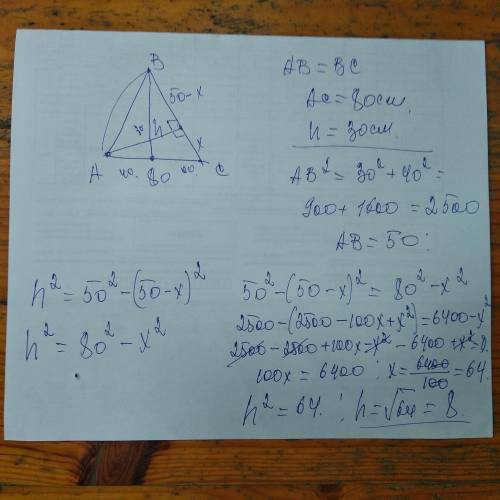 B
50-x
30
h
x
A
40.
80
40.
C
AB = BC
AC = 80см.
h = 30см.
AB² = 30² + 40² =
900 + 1600 = 2500
AB = 50 :
h² = 50² - (50-x)²
h² = 80² - x²
50² - (50-x)² = 80² - x²
2500 - (2500 - 100x + x²) = 6400 - x²
2500 - 2500 + 100x - x² - 6400 + x² = 0.
100x = 6400 : x = 6400/100 = 64.
h² = 64. : h = √64 = 8.